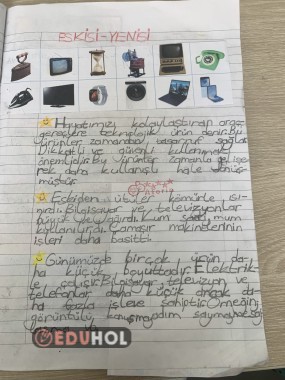 ESKİSİ-YENİSİ
Hayatımızı kolaylaştıran araç
gereçlere teknolojik ürün denir. Bu
ürünler zamandan tasarruf sağlar.
Dikkatli ve güvenli kullanmak
önemlidir. Bu ürünler zamanla gelişe
rek daha kullanışlı hale dönüş-
müştür.
Eskiden ütüler kömürle ısı-
nırdı. Bilgisayar ve televizyonlar
büyük Kum saati, mum
kullanılırdı. Çamaşır makinelerinin
işleri daha basitti.
Günümüzde birçok ürün da-
ha küçük boyuttadır. Elektrik-
le çalışır. Bilgisayar, televizyon ve
telefonlar daha küçük daha
fazla işleve sahiptir. Örneğin;
görüntülü konuşma, adım sayma
EDUHOL